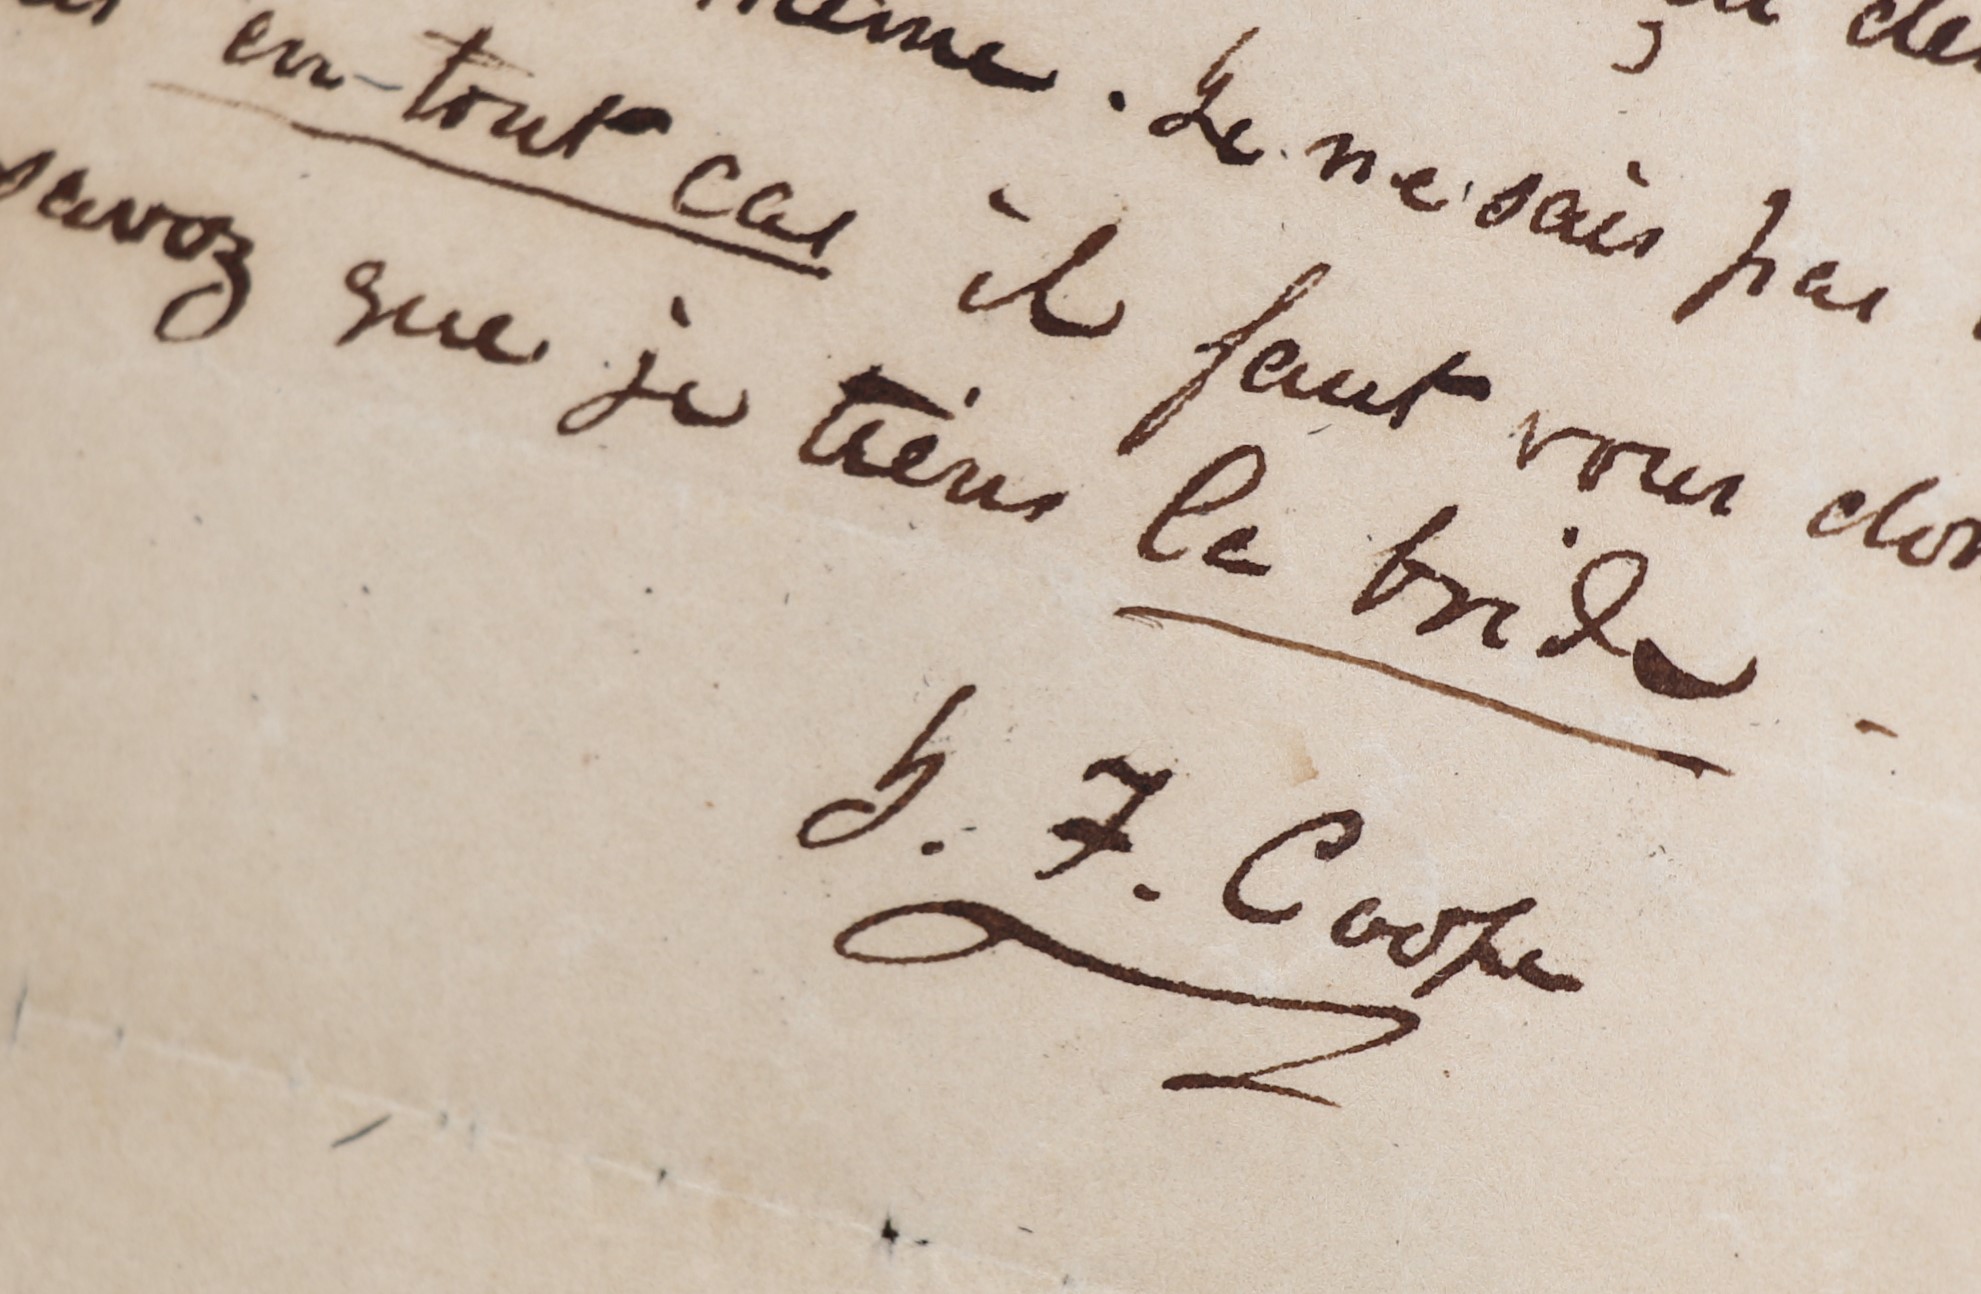 même. Je ne sais pas
en-tout cas il faut vous
savoz que je tiens la bride -
J. F. Coope